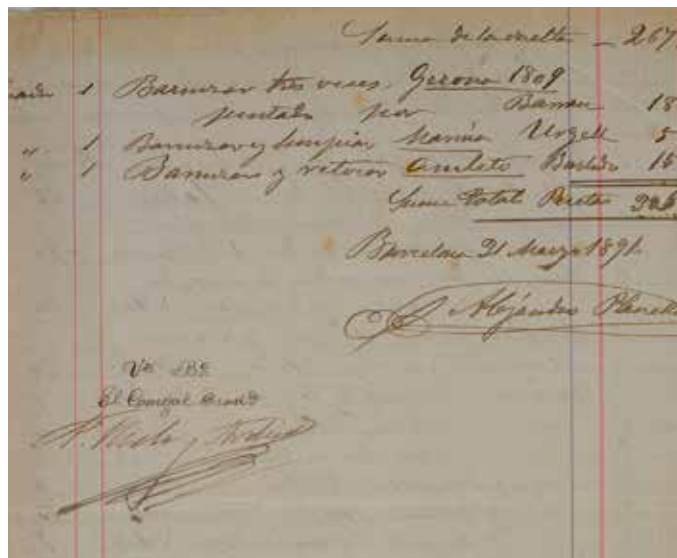 Suma de la vuelta _ 267
1 Barnizar tres veces. Gerona 1809
pintado por Barrau 18
" 1 Barnizar y limpiar Marina Urgell 5
" 1 Barnizar y retocar Amleto 15
Suma total Pesetas
Barcelona 31 Marzo 1891.
Alejandro
Vº Bº
El Concejal